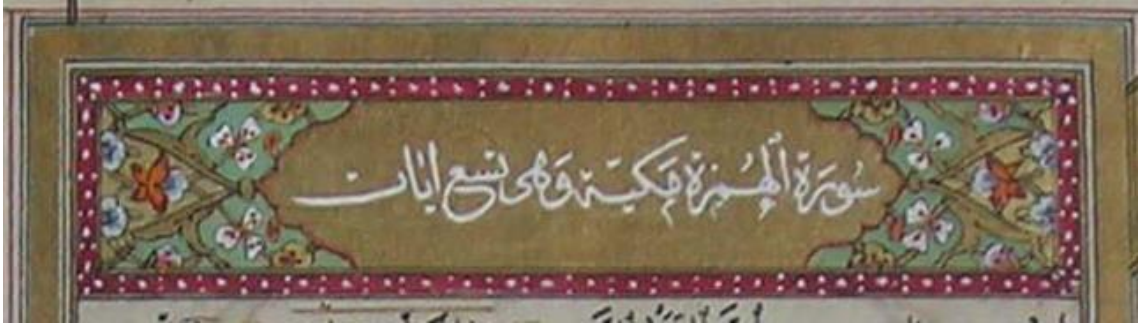 سُورَة الهُمَزة مكية وَهى تسع ايات